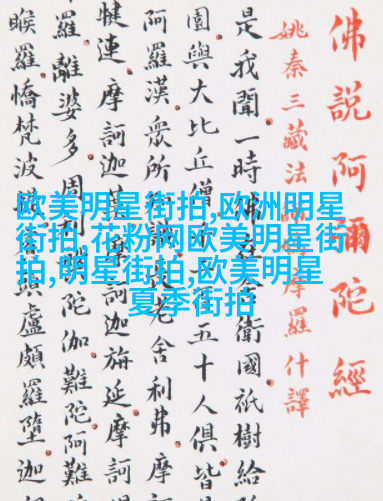 佛說阿彌陀經
姚秦三藏法摩羅什譯
是我聞一時衛國祇樹給
園與大比丘僧五十人俱皆
阿羅漢眾所老舍利弗摩
犍連摩訶迦摩訶迦旃延摩訶
羅離婆多周利陀伽難陀阿難
睺羅憍梵波頭盧頗羅墮迦
欧美明星街拍,欧洲明星
街拍,花粉网欧美明星街
拍,明星街拍,欧美明星
夏季街拍